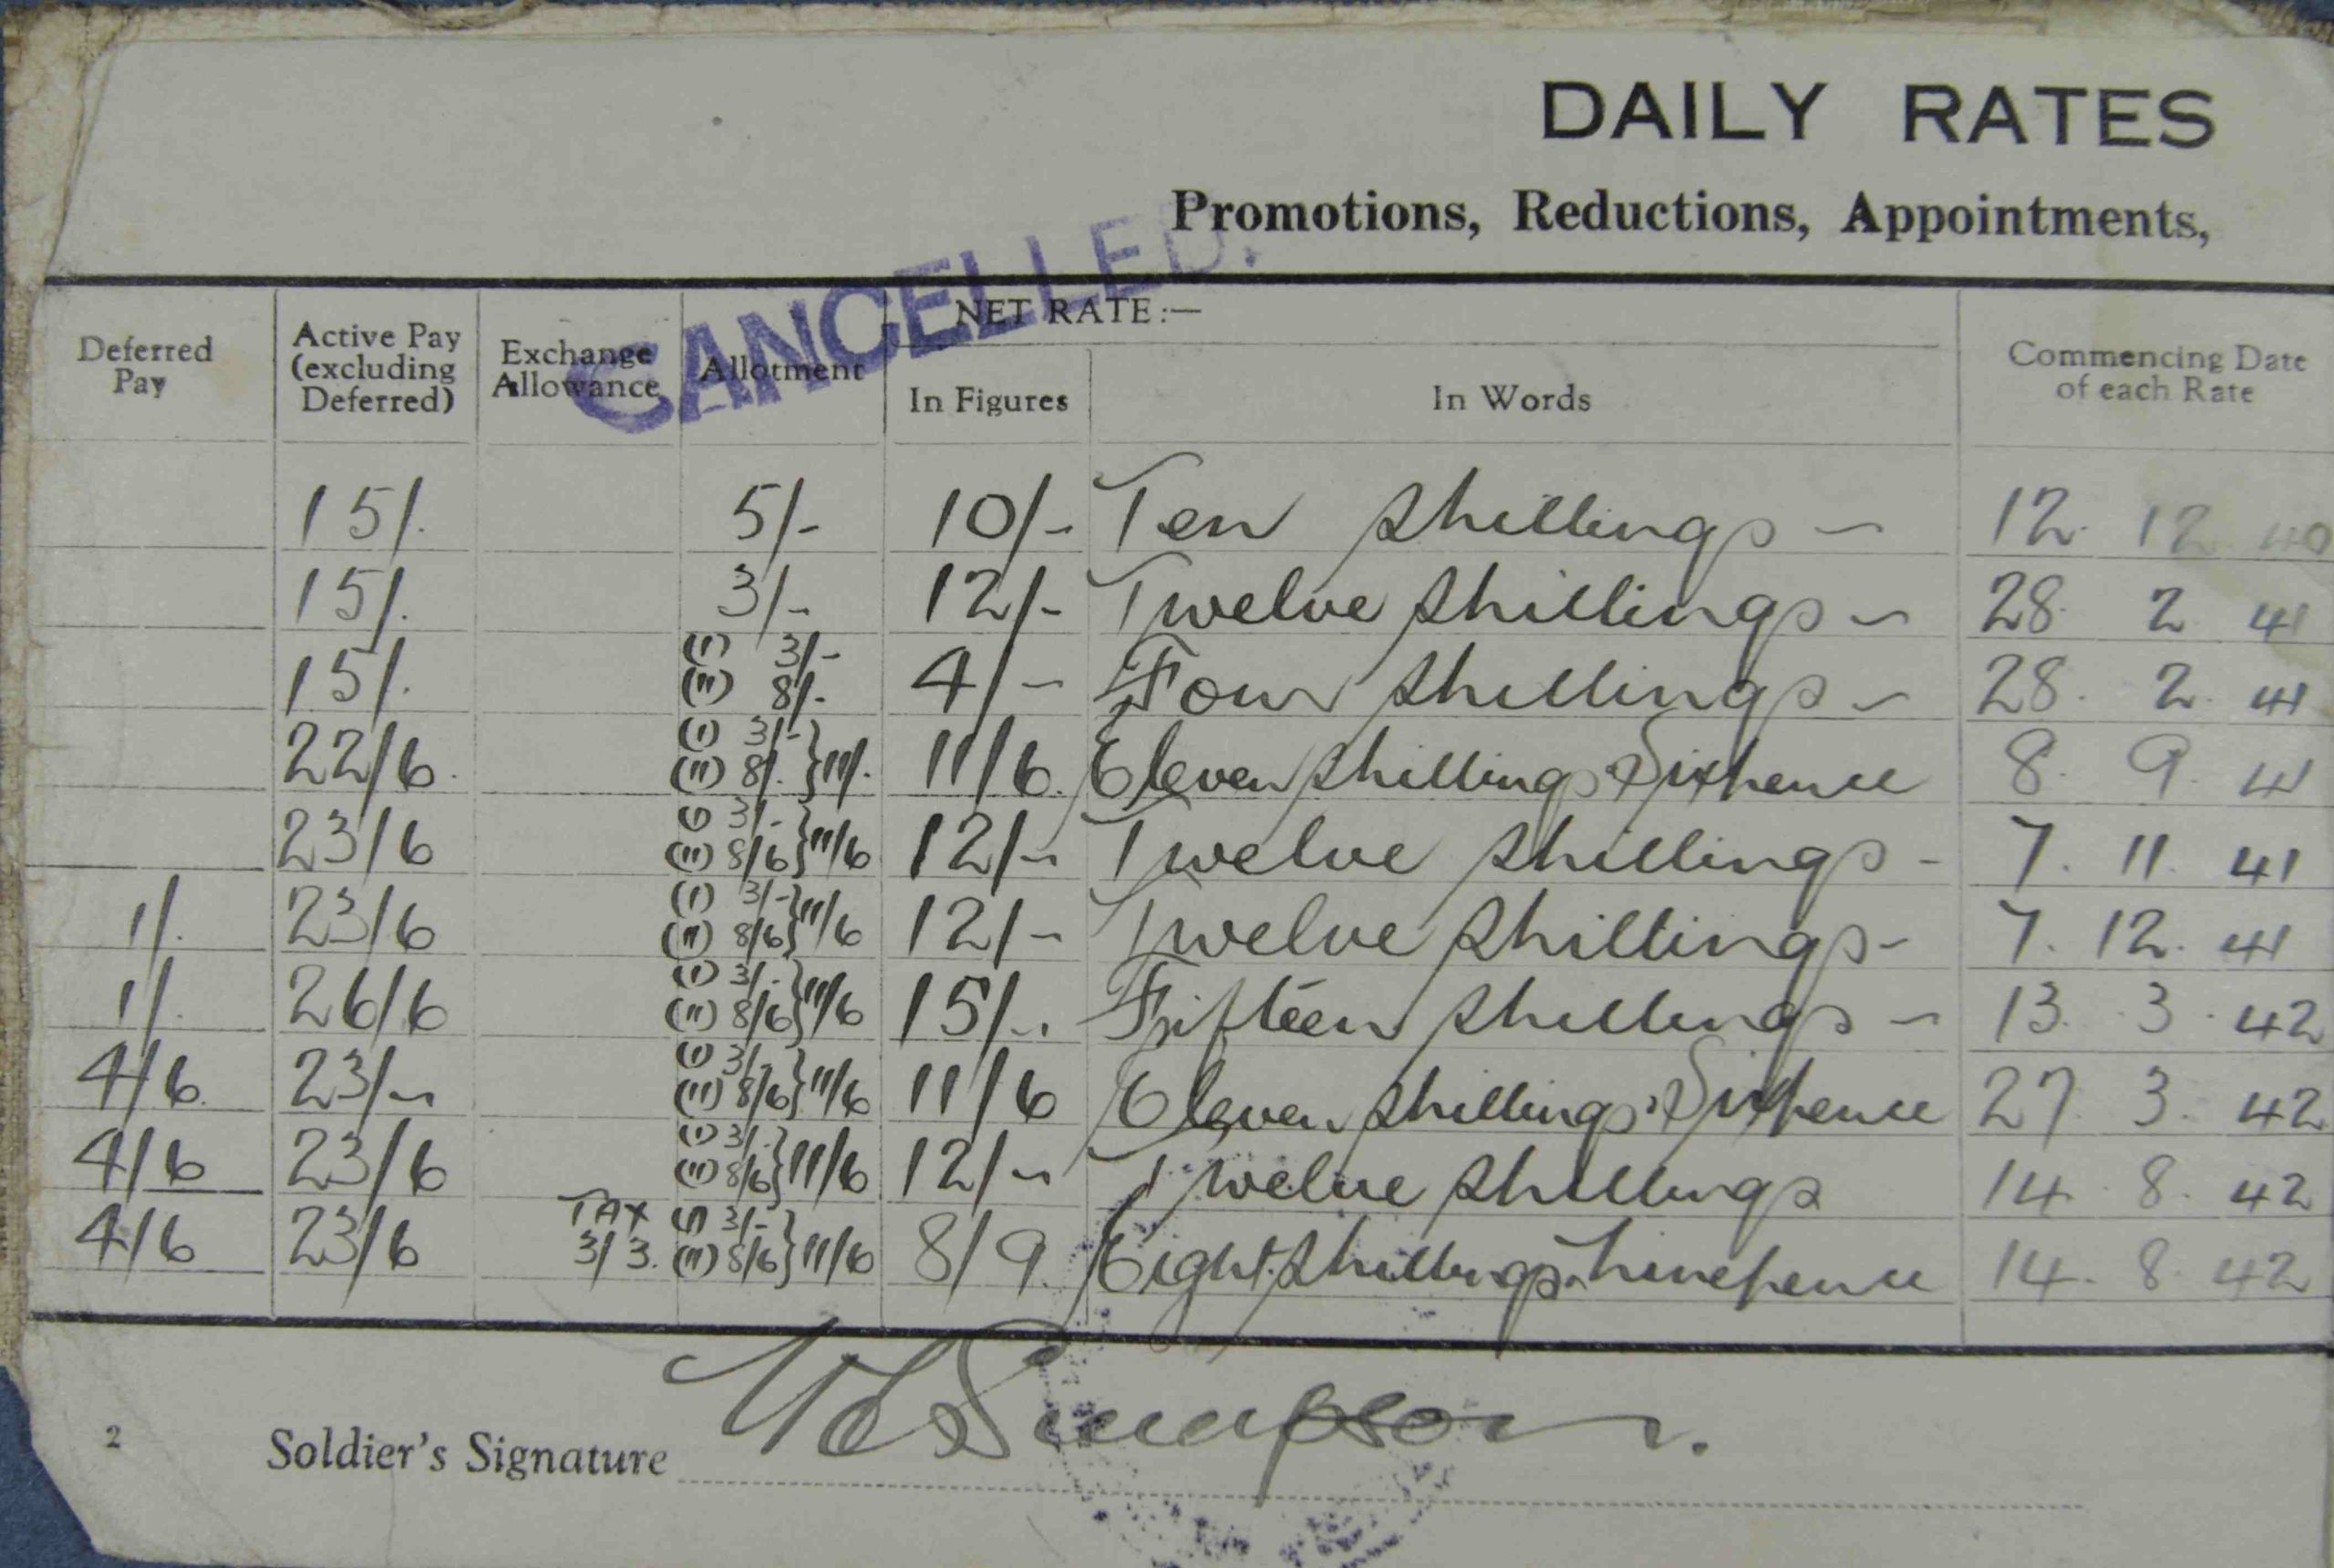 DAILY RATES
Promotions, Reductions, Appointments,
CANCELLED.
NET RATE:—
Deferred Pay Active Pay (excluding Deferred) Exchange Allowance Allotment In Figures In Words Commencing Date of each Rate
15/. 5/- 10/- Ten shillings - 12. 12 40
15/. 3/- 12/- Twelve shillings - 28. 2 41
15/. (I) 3/- (II) 8/- 4/- Four shillings - 28. 2. 41
22/6. (I) 3/- (II) 8/. } 11/. 11/6. Eleven shillings & Sixpence 8. 9. 41
23/6 (I) 3/- (II) 8/6 } 11/6 12/- Twelve shillings - 7. 11. 41
1/. 23/6 (I) 3/- (II) 8/6 } 11/6 12/- Twelve shillings - 7. 12. 41
1/. 26/6 (I) 3/- (II) 8/6 } 11/6 15/- Fifteen shillings - 13. 3. 42
4/6 23/- (I) 3/- (II) 8/6 } 11/6 11/6 Eleven shillings & Sixpence 27 3. 42
4/6 23/6 (I) 3/- (II) 8/6 } 11/6 12/- Twelve shillings 14. 8. 42
4/6 23/6 TAX 3/3. (I) 3/- (II) 8/6 } 11/6 8/9. Eight shillings ninepence 14. 8. 42
2 Soldier's Signature Simpson.